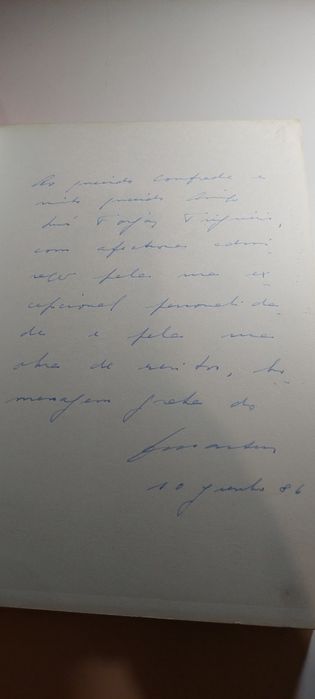 Ao querido confrade e
muito querido Amigo
Luís Forjaz Trigueiros,
com afectuosa admi-
ração pela sua ex-
cepcional personalida-
de e pela sua
obra de escritor, ho-
menagem grata do
10 junho 86